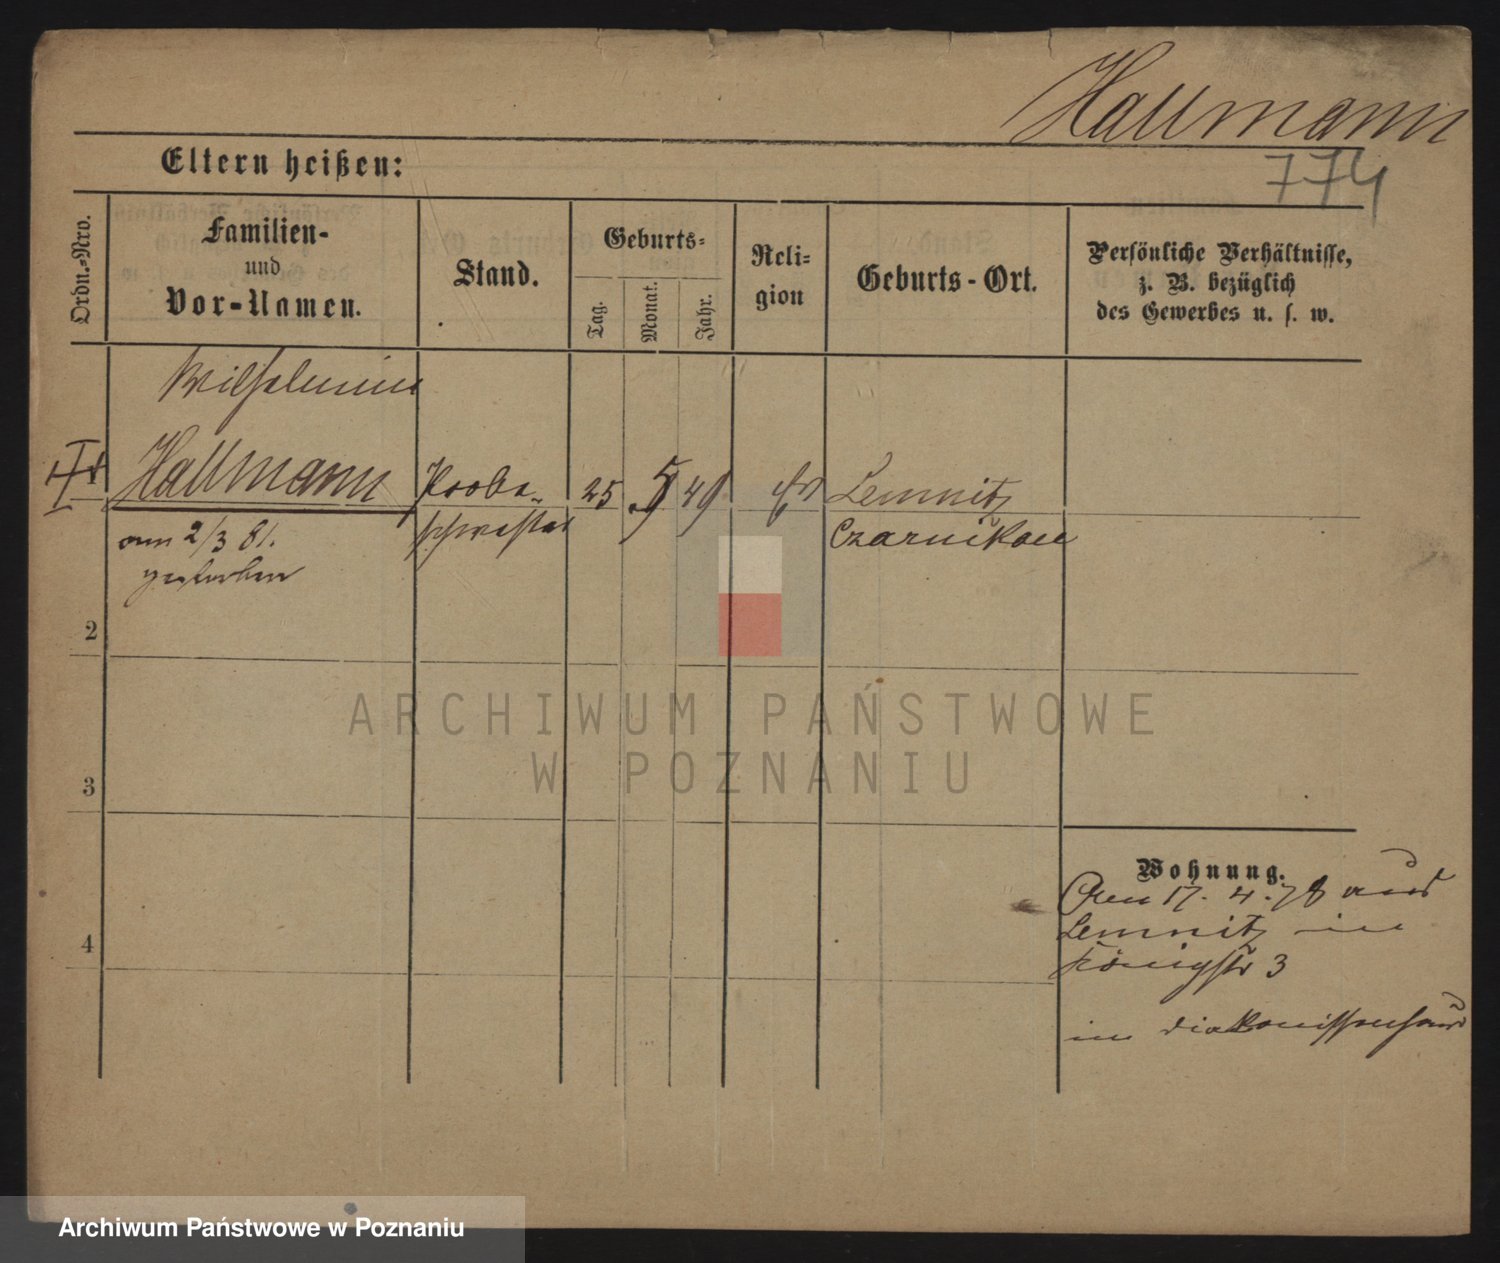 Hallmann
774
Eltern heißen:
Ordn.-Nro.
Familien-
und
Vor-Namen.
Stand.
Geburts-
Tag.
Monat.
Jahr.
Reli-
gion
Geburts-Ort.
Persönliche Verhältnisse,
z. B. bezüglich
des Gewerbes u. s. w.
Wilhelmine
1 Hallmann Probe- 25 5 49 ev Lemnitz
schwester Czarnikau
am 2/3 81.
gestorben
2
3
4
Wohnung.
Den 17. 4. 78 aus
Lemnitz in
Königstr 3
im Diakonissenhaus
ARCHIWUM PAŃSTWOWE
W POZNANIU
Archiwum Państwowe w Poznaniu